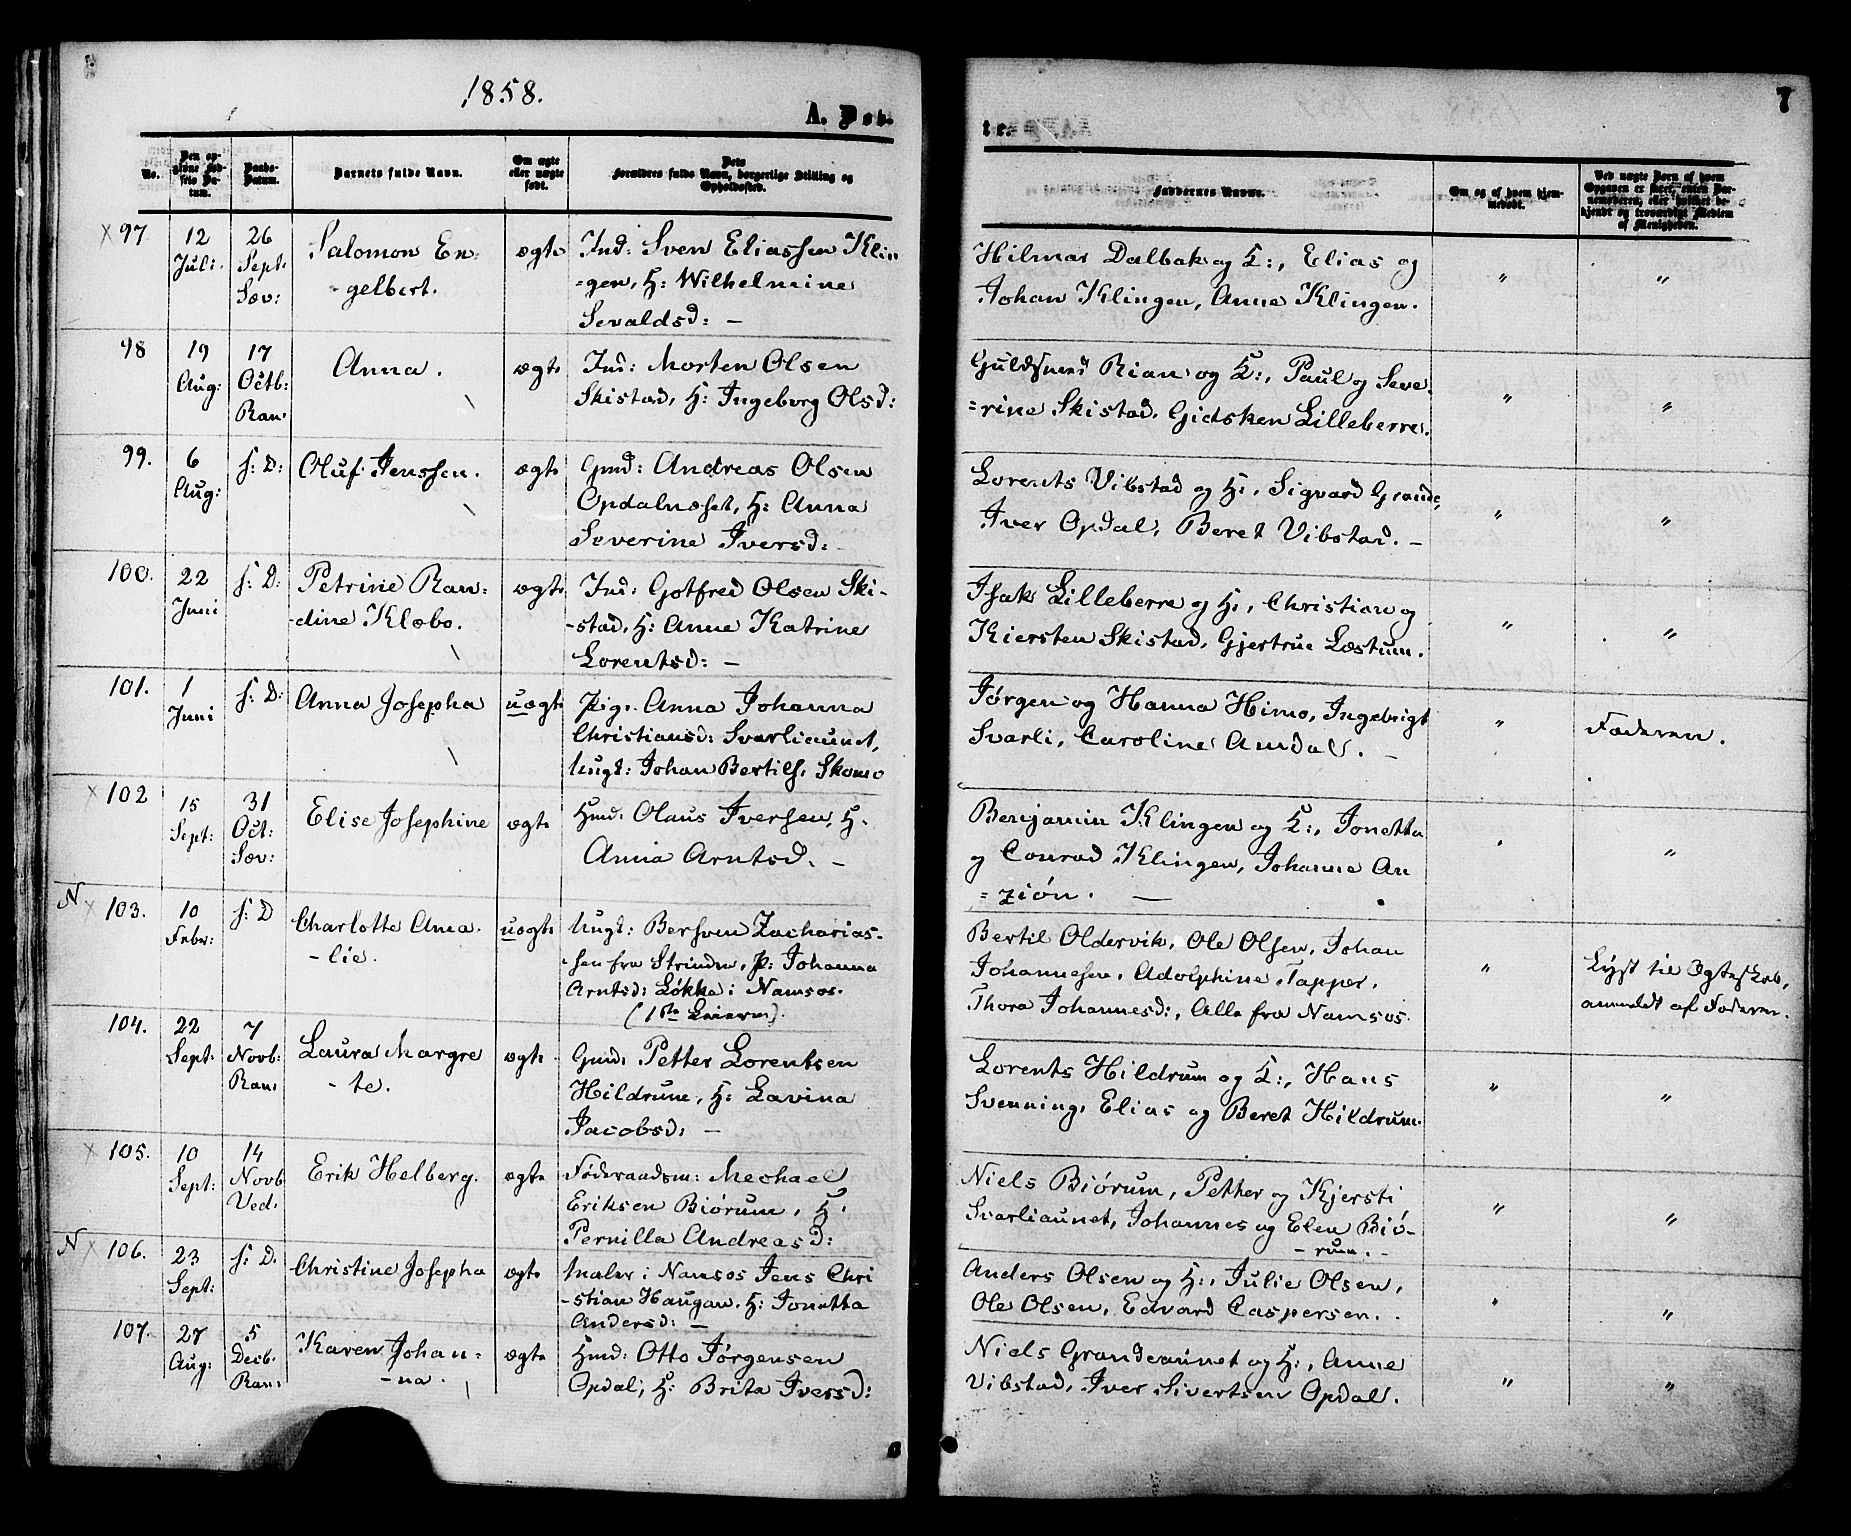 1858.
A. Døb-
No.
Den op-
givne Fød-
sels Da-
tum.
Daabs-
Datum.
Barnets fulde Navn.
Om ægte
eller uægte
født.
Dets
Forældres fulde Navn, borgerlige Stilling og
Opholdssted.
97
12
Juli.
26
Sept.
Sæv:
Salomon En-
gelbert.
ægte
Ind: Sven Eliassen Klin
=gen, H: Wilhelmine
Sevaldsd: —
98
19
Aug:
17
Octb:
Ran:
Anna.
ægte
Ind: Morten Olsen
Skistad, H: Ingeborg Olsd:
99.
6
Aug:
s: D:
Oluf Jenssen.
ægte
Gmd: Andreas Olsen
Opdalnæset, H: Anna
Severine Iversd: -
100.
22
Juni
s: D:
Petrine Ran-
-dine Klæbo.
ægte
Ind: Gotfred Olsen Ski-
-stad, H: Anne Katrine
Lorentsd: —
101.
1
Juni
s: D:
Anna Josepha
uægte
Pige Anna Johanna
Christiansd: Svarliaunet,
Ungk: Johan Bertils. Skomo
102
15
Sept:
31
Oct:
Sæv:
Elise Josephine
ægte
Hmd: Olaus Iversen, H.
Anna Arntsd. —
N 103.
10
Febr:
s: D
Charlotte Ama-
-lie.
uægte
Ungk: Bersven Zacharias-
-sen fra Strinden, P: Johanna
Arntsd: Løkke i Namsos.
(1ste Leierm).
104.
22
Sept:
7
Novb:
Ran:
Laura Margre
-te.
ægte
Gmd: Petter Lorentsen
Hildrum, H: Lavina
Jacobsd: —
105.
10
Sept:
14
Novb
Ved.
Erik Helberg.
ægte
Føderaadsm: Mechael
Eriksen Biørum, H.
Pernilla Andreasd:
N 106.
23
Sept:
s: D.
Christine Josepha
ægte
Maler i Namsos Jens Chri
-stian Haugan, H: Jonetta
Andersd: —
107.
27
Aug:
5
Decb.
Ran:
Karen Johan-
-na.
ægte
Hmd: Otto Jørgensen
Opdal, H: Brita Iversd:
te.
7
Faddernes Navne.
Om og af hvem hjem-
medøbt.
Ved uægte Børn af hvem
Opgaven er skeet, enten Bar-
nemoderen, eller hvilket be-
kjendt og troværdigt Medlem
af Menigheden.
Hilmar Dalbak og K:, Elias og
Johan Klingen, Anne Klingen.
"
"
Guldsmed Rian og K:, Paul og Seve-
=rine Skistad, Gidsken Lilleberre.
"
"
Lorents Vibstad og H:, Sigvard Grande,
Iver Opdal, Beret Vibstad. —
"
"
Isak Lilleberre og H:, Christian og
Kiersten Skistad, Gjertrue Læstum.
"
"
Jørgen og Hanna Himo, Ingebrigt
Svarli, Caroline Amdal. -
"
Faderen.
Benjamin Klingen og K:, Jonetta
og Conrad Klingen, Johanne An
=ziøn. —
"
"
Bertil Oldervik, Ole Olsen, Johan
Johannesen, Adolphine Tapper,
Thora Johannesd:, Alle fra Namsos.
"
Lyst til Ægteskab,
anmeldt af Faderen.
Lorents Hildrum og K:, Hans
Svenning, Elias og Beret Hildrum.
"
"
Niels Biørum, Petter og Kjersti
Svarliaunet, Johannes og Elen Biø-
-rum. -
"
"
Anders Olsen og H:, Julie Olsen,
Ole Olsen, Edvard Caspersen.
"
"
Niels Grandeaunet og H:, Anne
Vibstad, Iver Sivertsen Opdal.
"
"